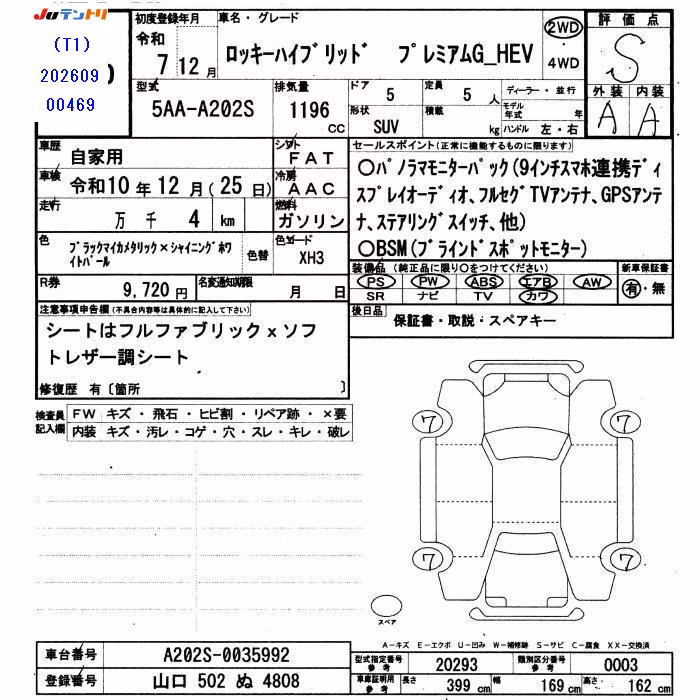 Juテントリ
(T1)
202609
00469
初度登録年月
令和
7 12月
車名・グレード
ロッキーハイブリッド プレミアムG_HEV
2WD
・
4WD
評価点
S
外装 内装
A A
型式
5AA-A202S
排気量
1196
CC
ドア
5
定員
5 人
形状
SUV
積載
kg
ディーラー・並行
モデル年式 年
ハンドル 左・右
車歴
自家用
シフト
FAT
車検
令和10年12月(25日)
冷房
AAC
走行
万 千 4 km
燃料
ガソリン
色
ブラックマイカメタリック×シャイニングホワイトパール
色替
色コード
XH3
R券
9,720円
名変通知期限
月 日
セールスポイント(正常に機能するものに限ります)
○パノラマモニターパック(9インチスマホ連携ディ
スプレイオーディオ、フルセグTVアンテナ、GPSアンテ
ナ、ステアリングスイッチ、他)
○BSM(ブラインドスポットモニター)
装備品(純正品に限り○をつけてください)
PS PW ABS エアB AW
SR ナビ TV カワ
新車保証書
有・無
後日品
保証書・取説・スペアキー
注意事項申告欄(不具合内容等は具体的に記入して下さい)
シートはフルファブリックxソフ
トレザー調シート
修復歴 有〔箇所 〕
検査員記入欄
FW キズ・飛石・ヒビ割・リペア跡・×要
内装 キズ・汚レ・コゲ・穴・スレ・キレ・破レ
7 7
7 7
スペア
A－キズ E－エクボ U－凹み W－補修跡 S－サビ C－腐食 XX－交換済
車台番号
A202S-0035992
登録番号
山口 502 ぬ 4808
型式指定番号
参考
20293
類別区分番号
参考
0003
車庫証明用
参考
長さ 399 cm 幅 169 cm 高さ 162 cm